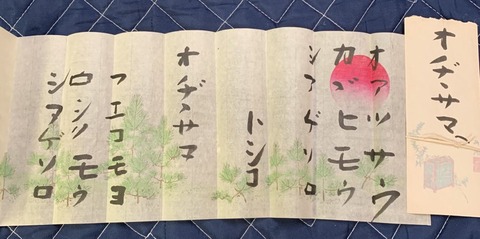 オヂサマ
オアツサウ
カゞヒモウ
シアゲソロ
トシコ
オヂサマ
フエコモヨ
ロシクモウ
シアゲソロ